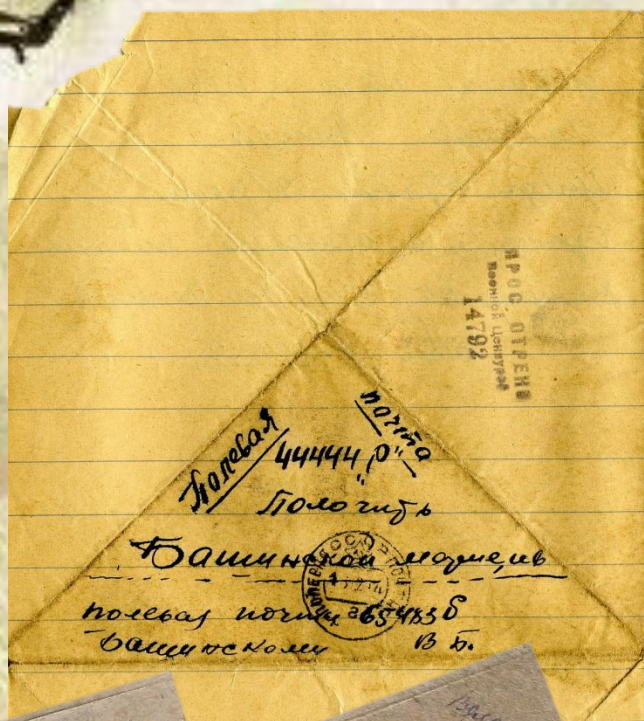 ПРОСМОТРЕНО
Военной Цензурой
14792
Полевая почта
44444 „р"
Получить
Башинской
полевая почта 65483 б
Башинскому В Б.